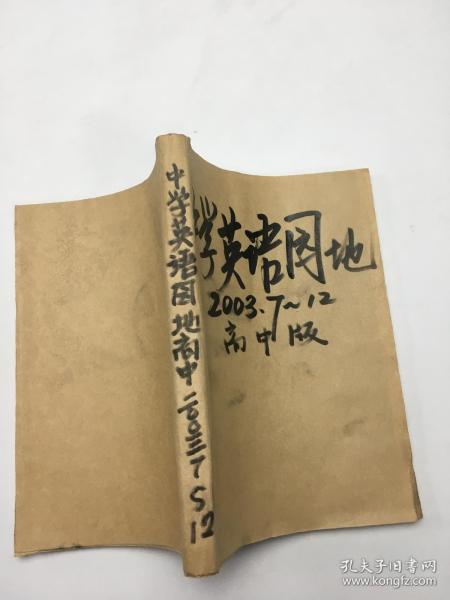 中学英语园地高中二〇〇三7~12
学英语园地
2003.7~12
高中版
孔夫子旧书网
www.kongfz.com